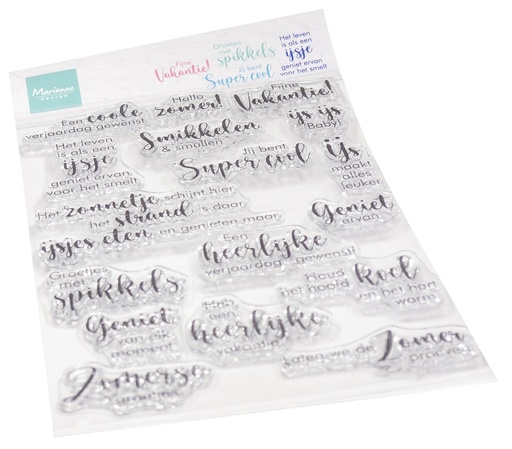 Marianne
design
Fijne
Vakantie!
Groetjes
met
spikkels
Jij bent
Super cool
Het leven
is als een
ijsje
geniet ervan
voor het smelt
Een coole
verjaardag gewenst
Hallo
zomer!
Fijne
Vakantie!
Het leven
is als een
ijsje
geniet ervan
voor het smelt
Smikkelen
& smullen
ijs ijs
Baby!
Jij bent
Super cool
IJs
maakt
alles
leuker
Het zonnetje schijnt hier
het strand is daar
ijsjes eten en genieten maar
Geniet
ervan
Groetjes
met
spikkels
Een
heerlijke
verjaardag gewenst!
Houd
het hoofd
koel
en het hart
warm
Geniet
van elk
moment
Heb
een
heerlijke
vakantie
Laten we de
Zomer
proeven
Zomerse
groetjes